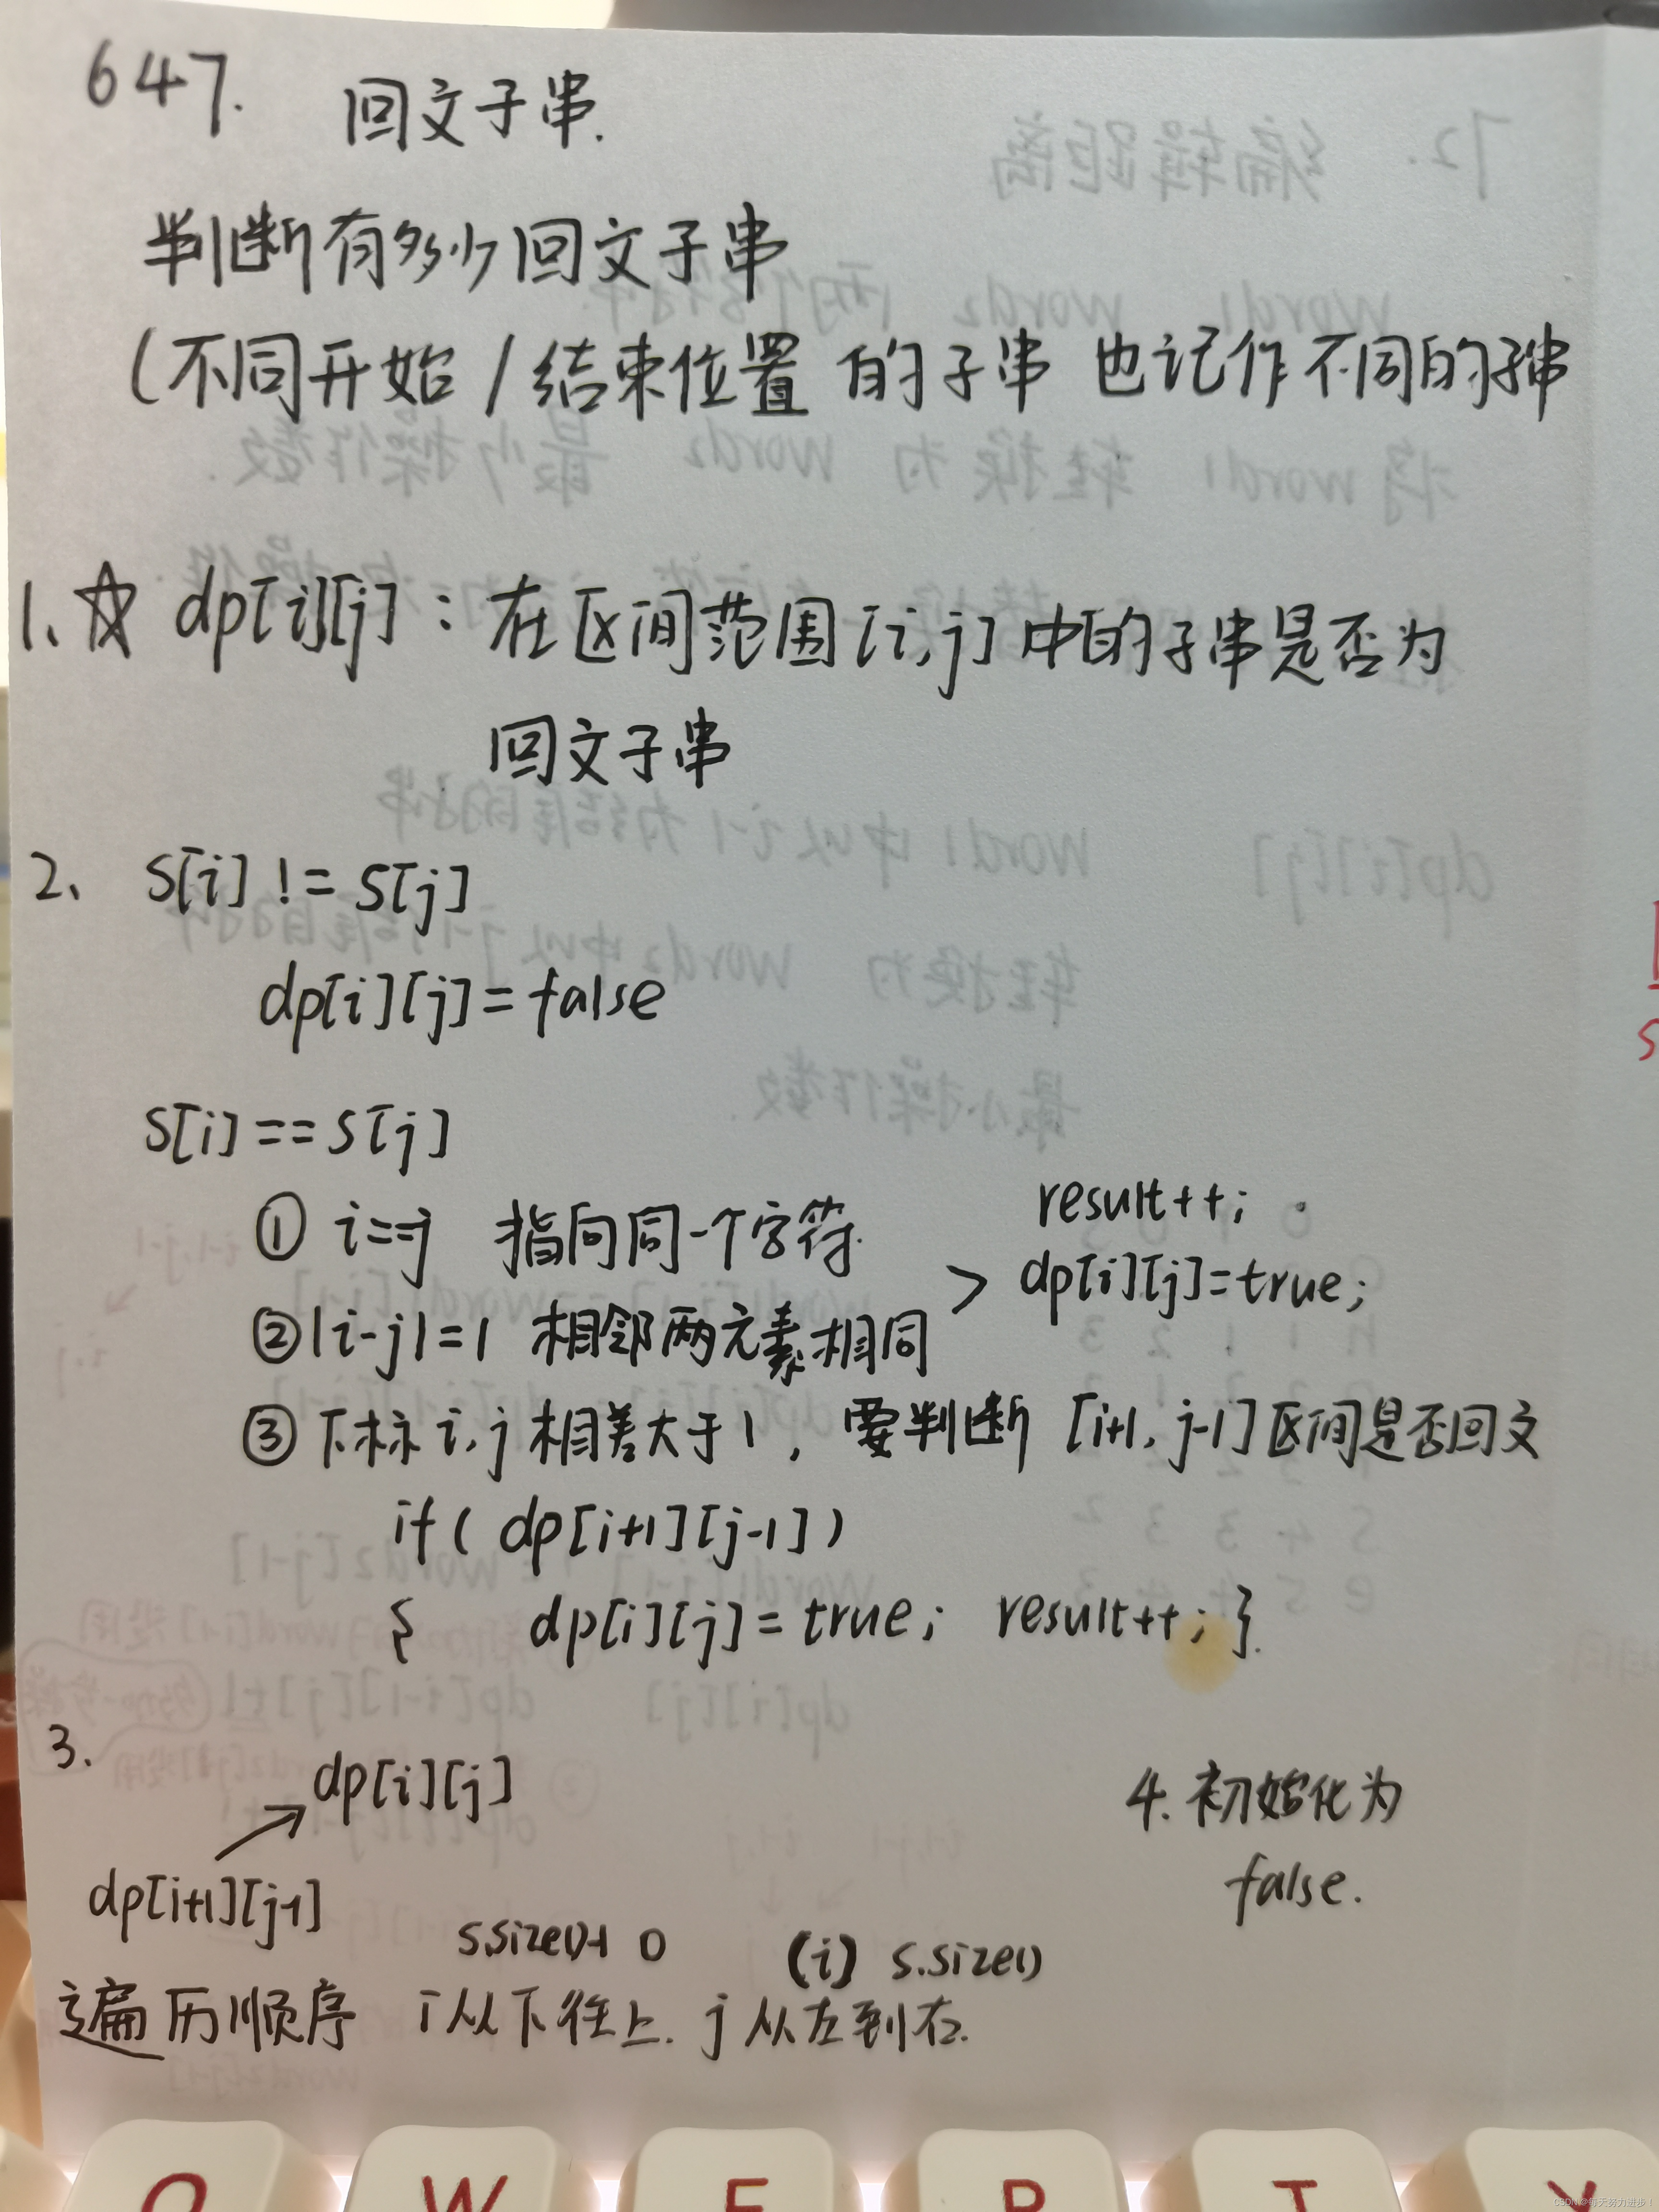 647. 回文子串.
判断有多少回文子串
(不同开始/结束位置 的子串 也记作不同的子串
1、☆ dp[i][j]：在区间范围[i,j]中的子串是否为
回文子串
2、 s[i] != s[j]
dp[i][j]=false
s[i]==s[j]
① i==j 指向同一个字符.
result++;
> dp[i][j]=true;
②|i-j|=1 相邻两元素相同
③下标 i,j 相差大于1，要判断 [i+1, j-1]区间是否回文
if( dp[i+1][j-1])
{ dp[i][j]=true; result++; }.
3.
dp[i][j]
4. 初始化为
false.
dp[i+1][j-1]
s.size()-1 0 (i) s.size()
遍历顺序 i从下往上. j从左到右.
Q W E R T Y
CSDN @每天努力进步！